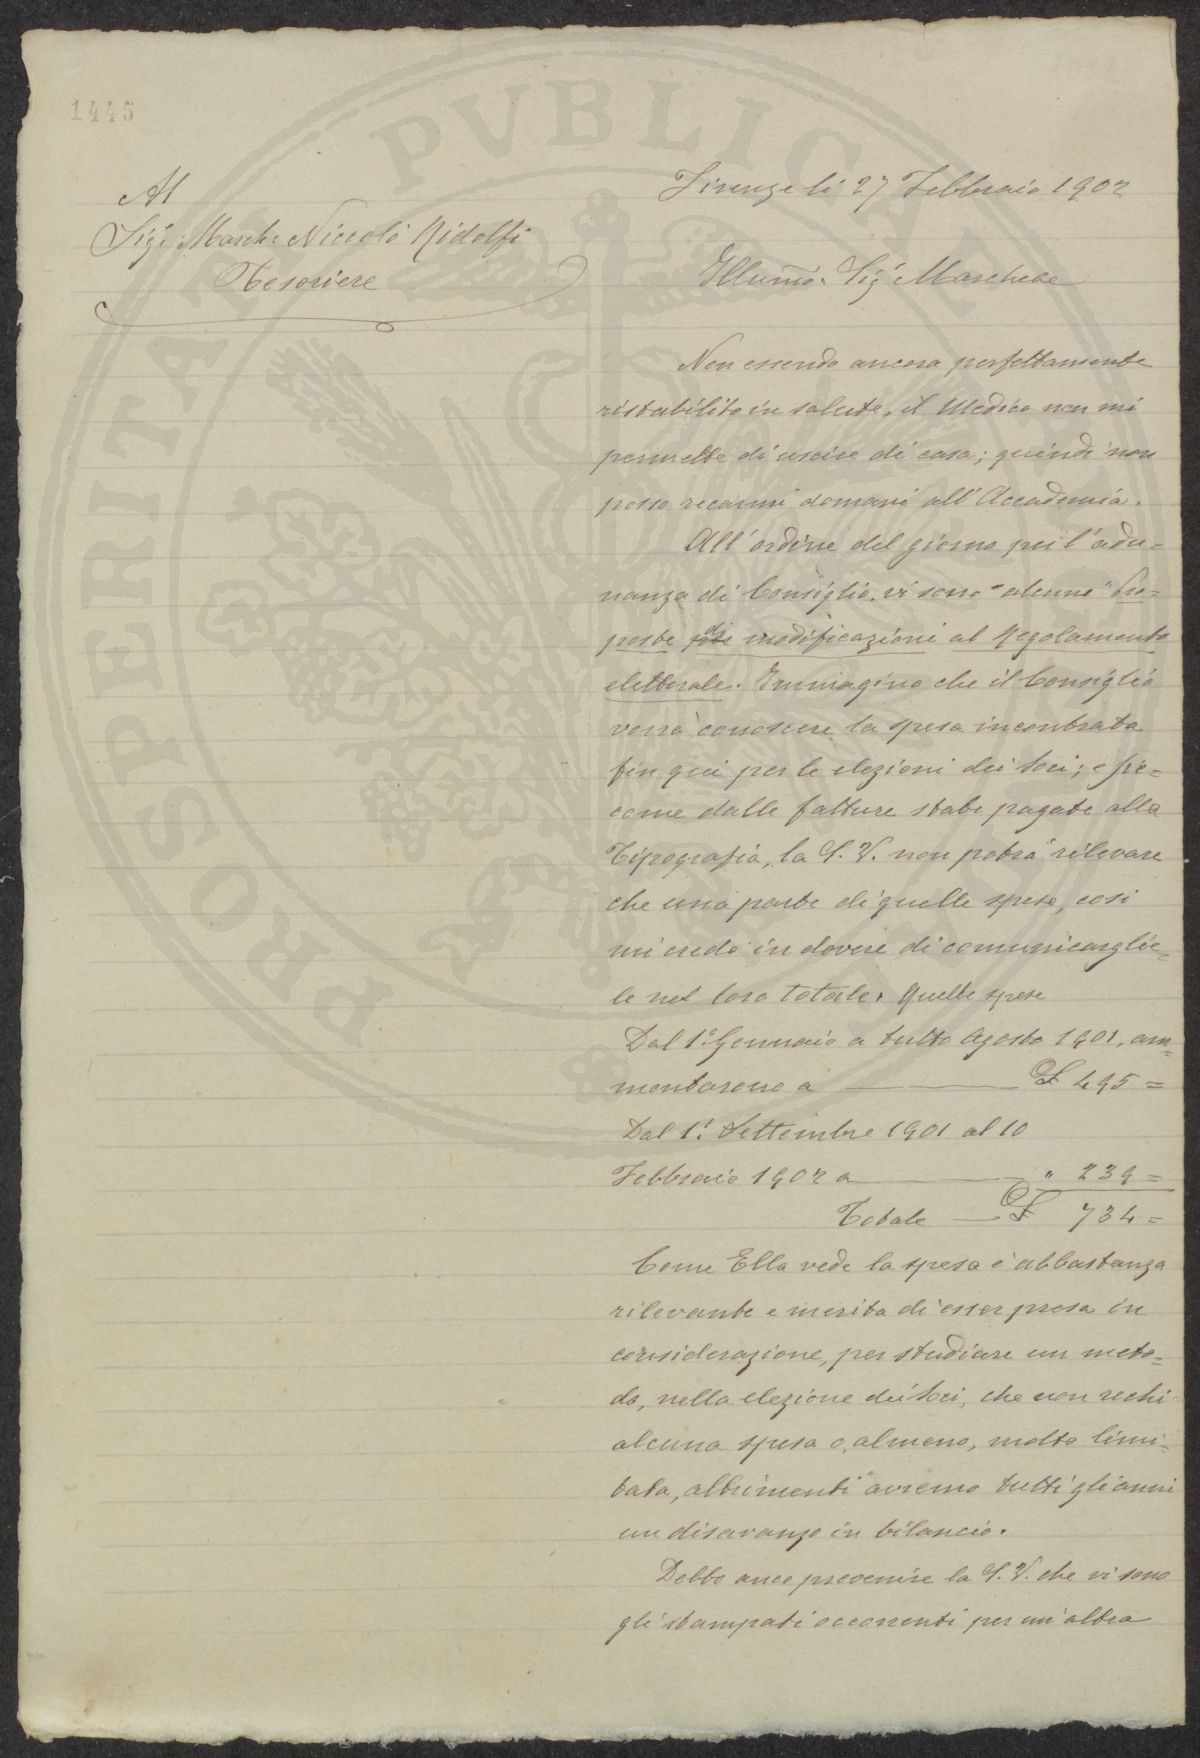 1445
Al
Sigr. Marche. Niccolò Ridolfi
Tesoriere
Firenze li 27 Febbraio 1902
Illumo. Sigr. Marchese
Non essendo ancora perfettamente
ristabilito in salute, il Medico non mi
permette di uscire di casa; quindi non
posso recarmi domani all'Accademia.
All'ordine del giorno per l'adu=
nanza di Consiglio. vi sono "alcune" Pro=
poste di modificazioni al Regolamento
elettorale. Immagino che il Consiglio
vorrà conoscere la spesa incontrata
fin qui per le elezioni dei Soci; e sic=
come dalle fatture state pagate alla
Tipografia, la S. V. non potrà rilevare
che una parte di quelle spese, così
mi credo in dovere di comunicarglie=
le nel loro totale. Quelle spese
Dal 1° Gennaio a tutto Agosto 1901, am=
montarono a £ 495 =
Dal 1° Settembre 1901 al 10
Febbraio 1902 a " 239 =
Totale £ 734 =
Come Ella vede la spesa è abbastanza
rilevante e merita di esser presa in
considerazione, per studiare un meto=
do, nella elezione dei Soci, che non rechi
alcuna spesa o, almeno, molto limi=
tata, altrimenti avremo tutti gli anni
un disavanzo in bilancio.
Debbo anco prevenire la S. V. che vi sono
gli stampati occorrenti per un'altra
PVBLICAE
PROSPERITATI